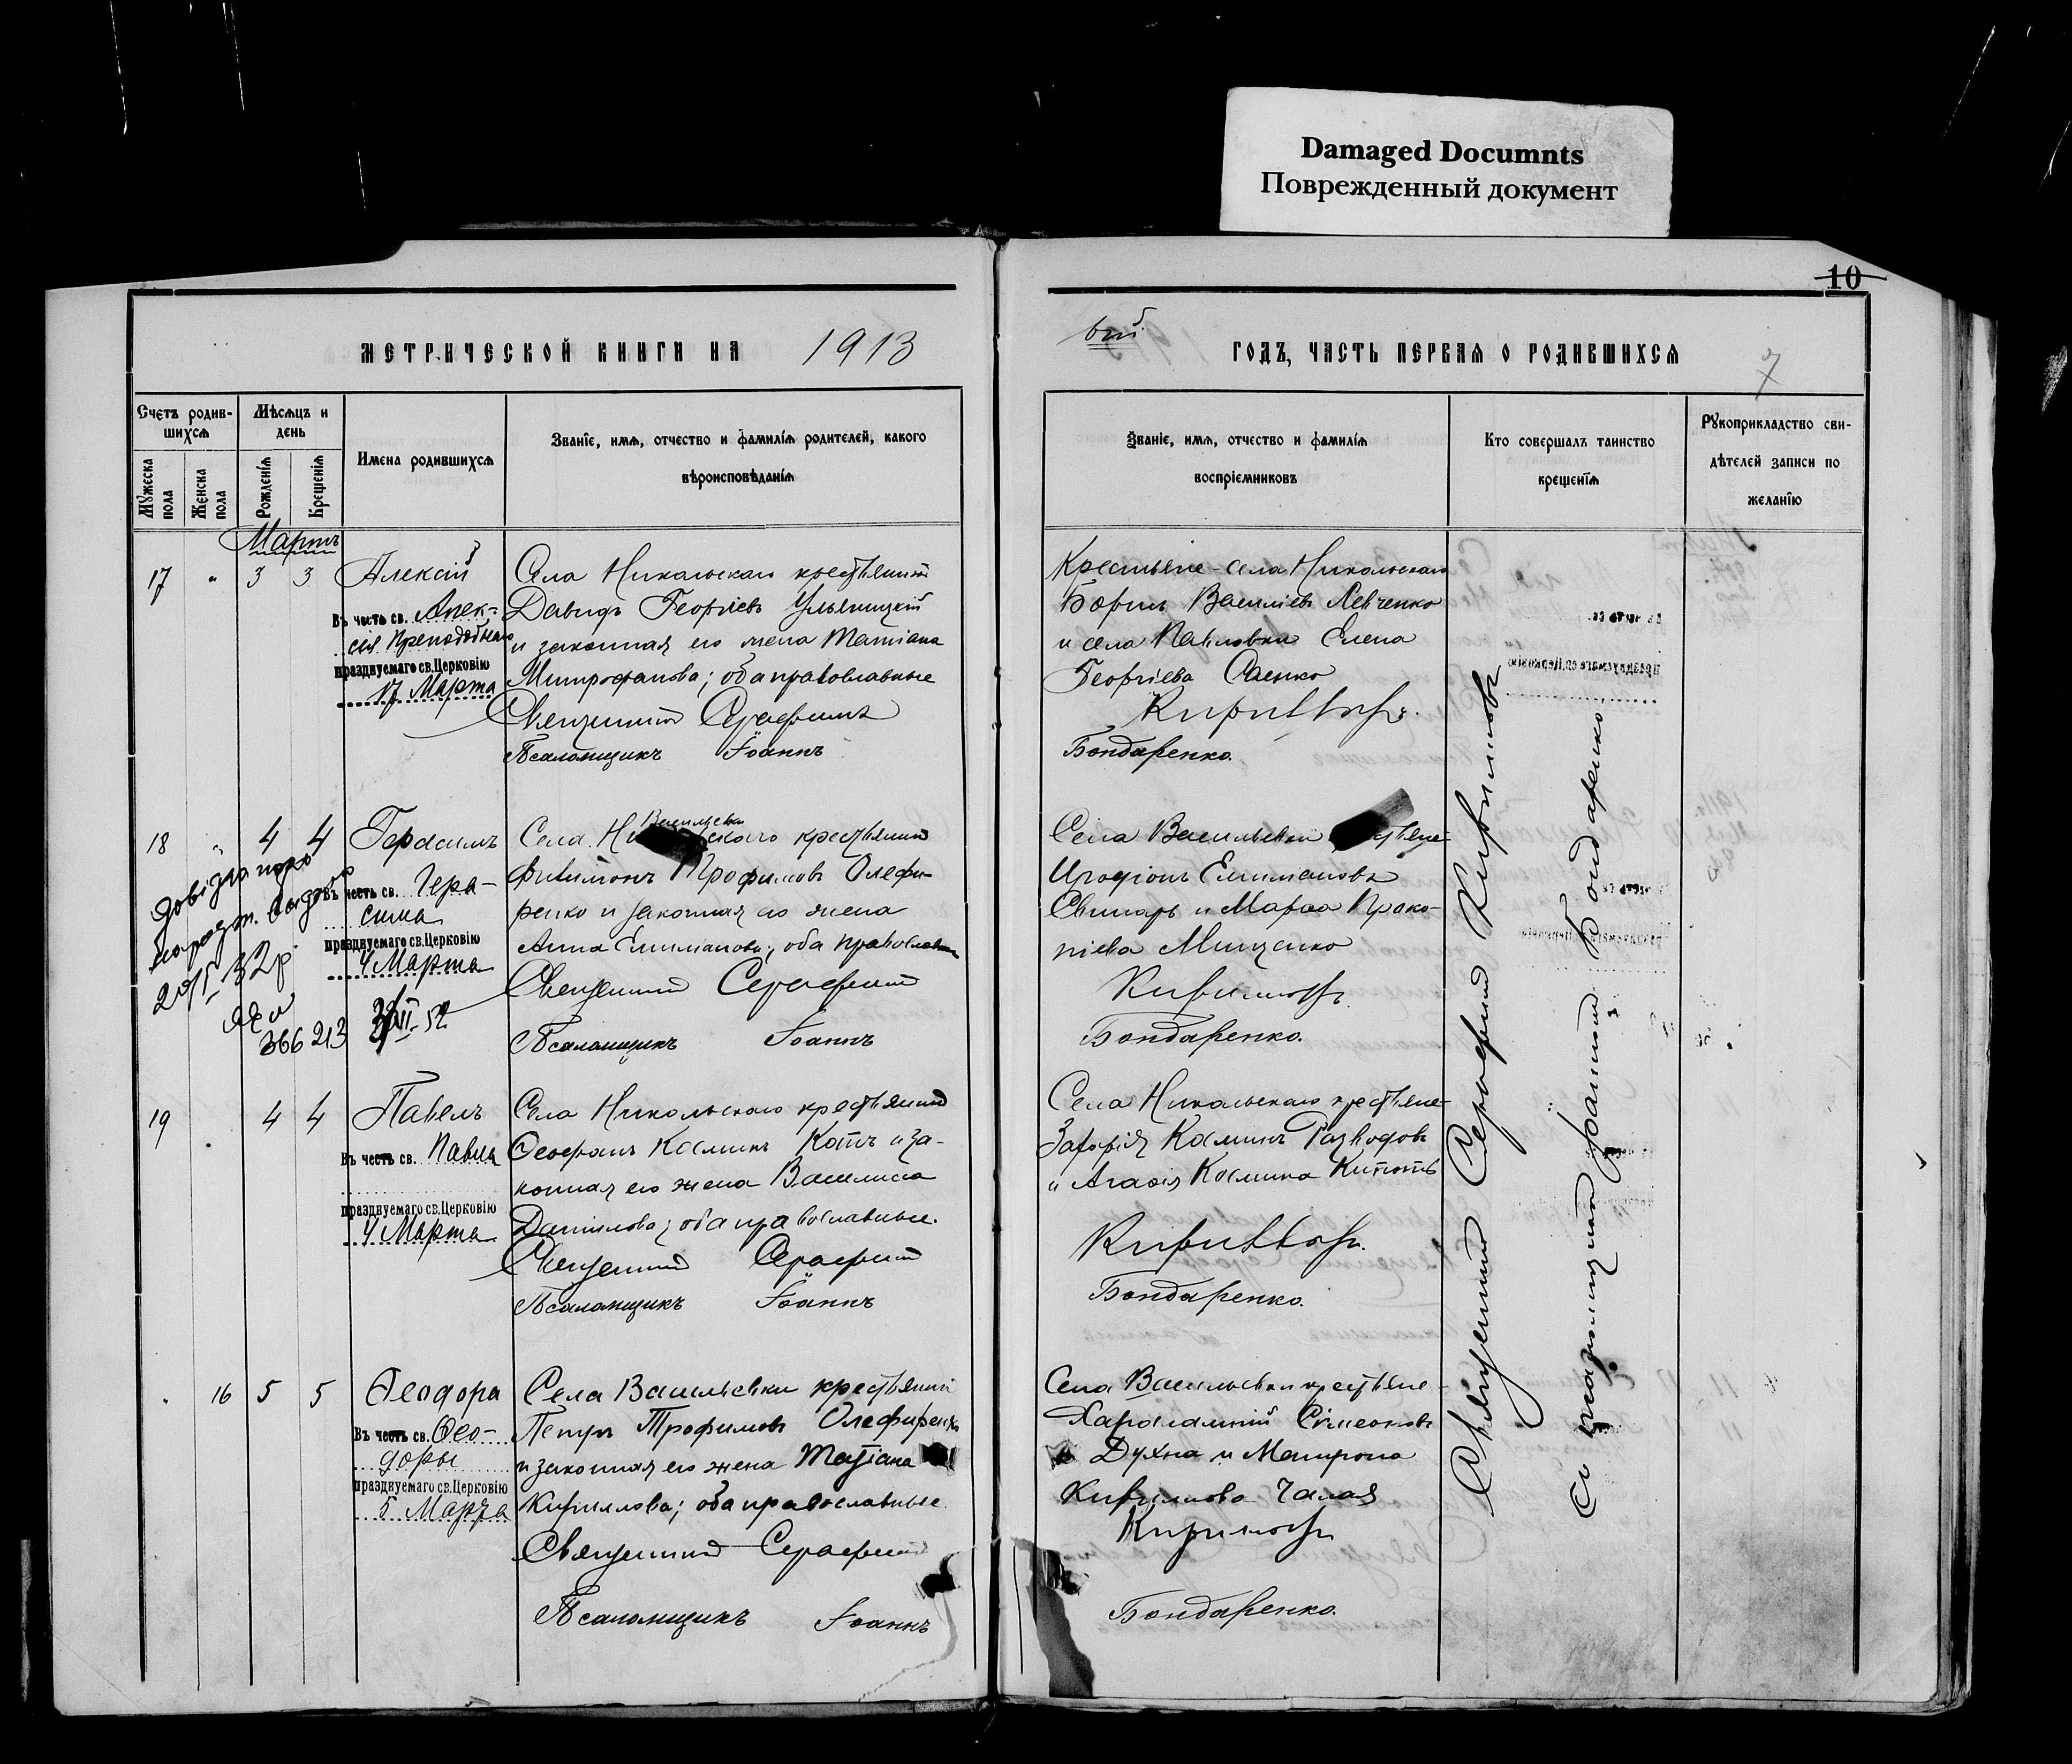 Damaged Documnts
Поврежденный документ
10
МЕТРИЧЕСКОЙ КНИГИ НА 1913
ый ГОДЪ, ЧАСТЬ ПЕРВАЯ О РОДИВШИХСЯ
7
Счетъ родив-
шихся
Мѣсяцъ и
день
Мужеска пола
Женска пола
Рожденія
Крещенія
Имена родившихся
Званіе, имя, отчество и фамилія родителей, какого
вѣроисповѣданія
Званіе, имя, отчество и фамилія
воспріемниковъ
Кто совершалъ таинство
крещенія
Рукоприкладство сви-
дѣтелей записи по
желанію
Мартъ
17 " 3 3 Алексій
Въ честь св. Алек-
сія Преподобнаго
празднуемаго св. Церковію
17 Марта
Села Никольскаго крестьянинъ
Давидъ Георгіевъ Ульяницкій
и законная его жена Татіана
Митрофанова; оба православные
Священникъ Серафимъ
Псаломщикъ Іоаннъ
Крестьяне села Никольскаго
Борисъ Василіевъ Левченко
и села Павловки Елена
Георгіева Саенко
Кирилловъ.
Бондаренко.
18 " 4 4 Герасимъ
Въ честь св. Гера-
сима
празднуемаго св. Церковію
4 Марта
довідка про
народж. видана
32 р.
366213
Васильевки
Села крестьянинъ
Филимонъ Трофимовъ Олефи-
ренко и законная его жена
Анна Елимапова; оба православные
Священникъ Серафимъ
Псаломщикъ Іоаннъ
Села Васильевки крестьяне
Иродіонъ Елимаповъ
Свинарь и Марѳа Проко-
піева Мищенко
Кирилловъ.
Бондаренко.
19 4 4 Павелъ
Въ честь св. Павла
празднуемаго св. Церковію
4 Марта
Села Никольскаго крестьянинъ
Ѳеофанъ Косминъ Котъ и за-
конная его жена Василисса
Данилова; оба православные.
Священникъ Серафимъ
Псаломщикъ Іоаннъ
Села Никольскаго крестьяне
Захарія Косминъ Разводовъ
и Агаѳія Космина
Кирилловъ.
Бондаренко.
16 5 5 Ѳеодора
Въ честь св. Ѳео-
доры
празднуемаго св. Церковію
5 Марта
Села Васильевки крестьянинъ
Петръ Трофимовъ Олефиренко
и законная его жена Татіана
Кириллова; оба православные.
Священникъ Серафимъ
Псаломщикъ Іоаннъ
Села Васильевки крестьяне
Харалампій Симеоновъ
Духна и Матрона
Кириллова Чалая
Кирилловъ
Бондаренко.
Священникъ Серафимъ Кирилловъ
Съ псаломщикомъ Іоанномъ Бондаренко